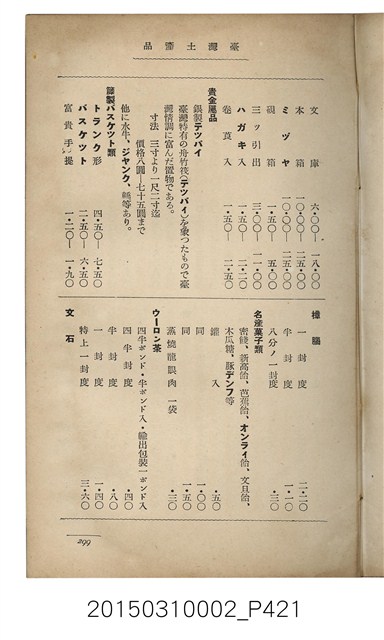 臺灣土產品
文庫 六・〇〇— 一八・〇〇
本箱 一〇・〇〇—二五・〇〇
ミヅヤ 一〇・〇〇—二五・〇〇
硯箱 一・五〇— 五・〇〇
三ッ引出 三・〇〇—一一・〇〇
ハガキ入 一・五〇— 二・五〇
卷莨入 一・五〇— 二・二〇
貴金屬品
銀製テツパイ
臺灣特有の舟竹筏(テツパイ)を象つたもので臺
灣情調に富んだ置物である。
寸法 三寸より一尺二寸迄
價格八圓—七十五圓まで
他に水牛、ジヤンク、 等あり。
籐製バスケツト類
トランク形 四・五〇— 七・五〇
バスケツト 二・五〇— 六・五〇
富貴手提 一・二〇— 一・九〇
樟腦
一封度 二・二〇
半封度 一・一〇
八分ノ一封度 ・三〇
名產菓子類
密餞、新高飴、芭蕉飴、オンライ飴、文旦飴、
木瓜糖、豚デンブ等
罐入 ・五〇
同 一・〇〇
同 一・五〇
蒸燒龍眼肉 一袋 ・三〇
ウーロン茶
四半ポンド・半ポンド入・輸出包裝一ポンド入
四半封度 ・四〇
半封度 ・八〇
一封度 一・四〇
特上一封度 三・六〇
文石
299
20150310002_P421